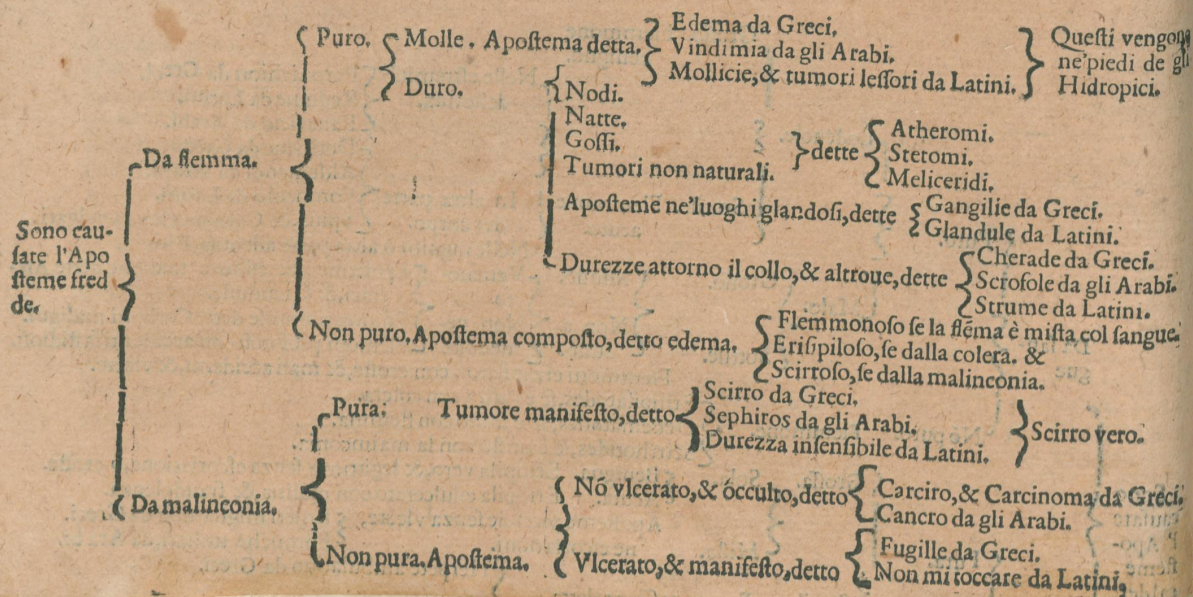 Puro.
Molle. Apoſtema detta.
Edema da Greci,
Vindimia da gli Arabi.
Mollicie,& tumori leſſori da Latini.
Queſti vengon
ne'piedi de gli
Hidropici.
Duro.
Nodi.
Natte.
Goſſi.
Tumori non naturali.
dette
Atheromi.
Stetomi.
Meliceridi.
Apoſteme ne'luoghi glandoſi,dette
Gangilie da Greci.
Glandule da Latini.
Durezze attorno il collo,& altroue,dette
Cherade da Greci.
Scrofole da gli Arabi.
Strume da Latini.
Da flemma.
Sono cau-
ſate l'Apo
ſteme fred
de.
Non puro.Apoſtema compoſto,detto edema.
Flemmonoſo ſe la flēma è miſta col ſangue.
Eriſipiloſo,ſe dalla colera. &
Scirroſo,ſe dalla malinconia.
Pura:
Tumore manifeſto,detto
Scirro da Greci.
Sephiros da gli Arabi.
Durezza inſenſibile da Latini.
Scirro vero.
Da malinconia.
Nō vlcerato,& occulto,detto
Carciro,& Carcinoma da Greci,
Cancro da gli Arabi.
Non pura.Apoſtema.
Vlcerato,& manifeſto,detto
Fugille da Greci.
Non mi toccare da Latini,